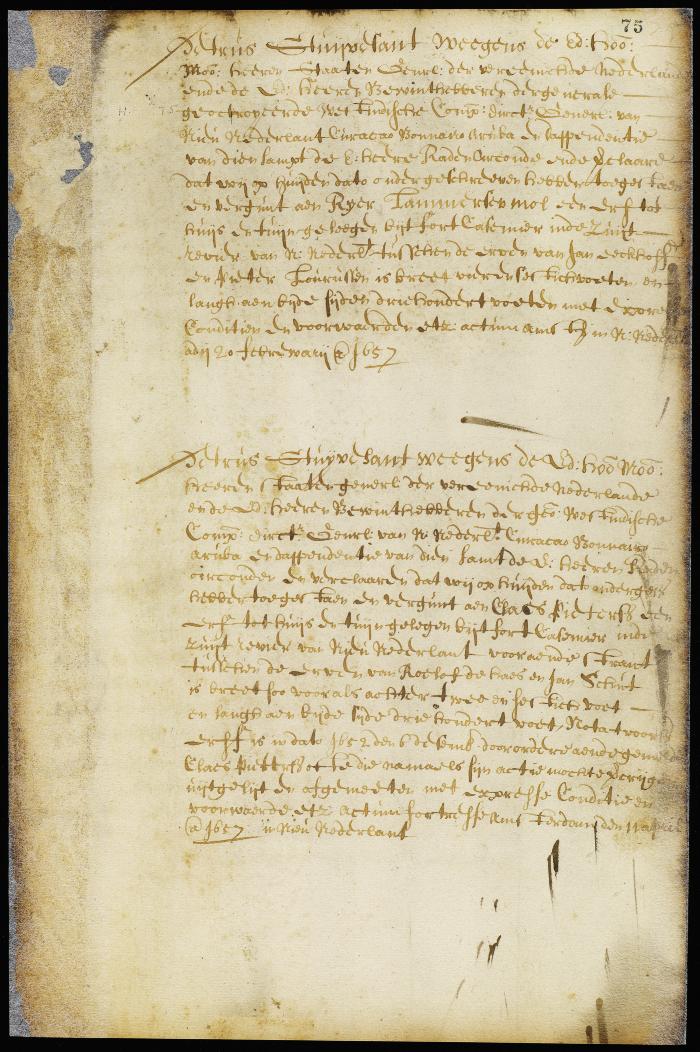 75
Petrus Stuyvesant weegens de Ed: Hoo:
Moo: heeren Staaten Generl: der vereenichde Nederlande
ende de Ed: heeren Bewinthebberen der generale
geoctroyeerde West Indische Comp: directr Generl: van
Nieu Nederlant Curacao Bonnairo Aruba en dappendentie
van dien sampt de E: heere Raden oirconde ende verclaare
dat wij op huijden dato ondergeschreeven hebben toegestaen
en vergunt aen Ryer Lammersen mol een erf tot
huijs en tuijn geleegen bijt fort Casemier inde Zuijt
revier van N: Nederlt tusschen de erven van Jan Eeckhoff
en Pieter Lourussen is breet vier en sestich voeten en
langh aen bijde sijden driehondert voeten met expresse
Conditien en voorwaerden etz: actum ams in N: Nederl
adij 20 februwarij Ao 1657
Petrus Stuijvesant weegens de Ed: Hoo: Moo:
heeren Staaten generl der vereenichde Nederlande
ende Ed: heeren Bewinthebberen der geo: West Indische
Comp: directr: Generl: van N: Nederlt Curacao Bonnairo
Aruba en dappendentie van dien samt de E: heeren Raden
oirconden en verclaaren dat wij op huijden dato ondergesz
hebben toegestaen en vergunt aen Claes Pietersz een
Erf tot huijs en tuijn gelegen bijt fort Casemier inde
Zuijt revier van Nieu Nederlant vooraende Straat
tusschen de erven van Roelof de haes en Jan Schut
is breet soo voor als achter twee en sestich voet
en langh aen bijde sijde drie hondert voet, Nota t voorsz
Erff is in dato 1652 den 6 decemb: door ordere aende gemelde
Claes Pietersz ofte die namaels sijn actie mochte vercrijge
uijtgelijt en afgemeeten met expresse Conditie en
voorwaerde etz actum fortresse Amsterdam den
Ao 1657 in Nieu Nederlant